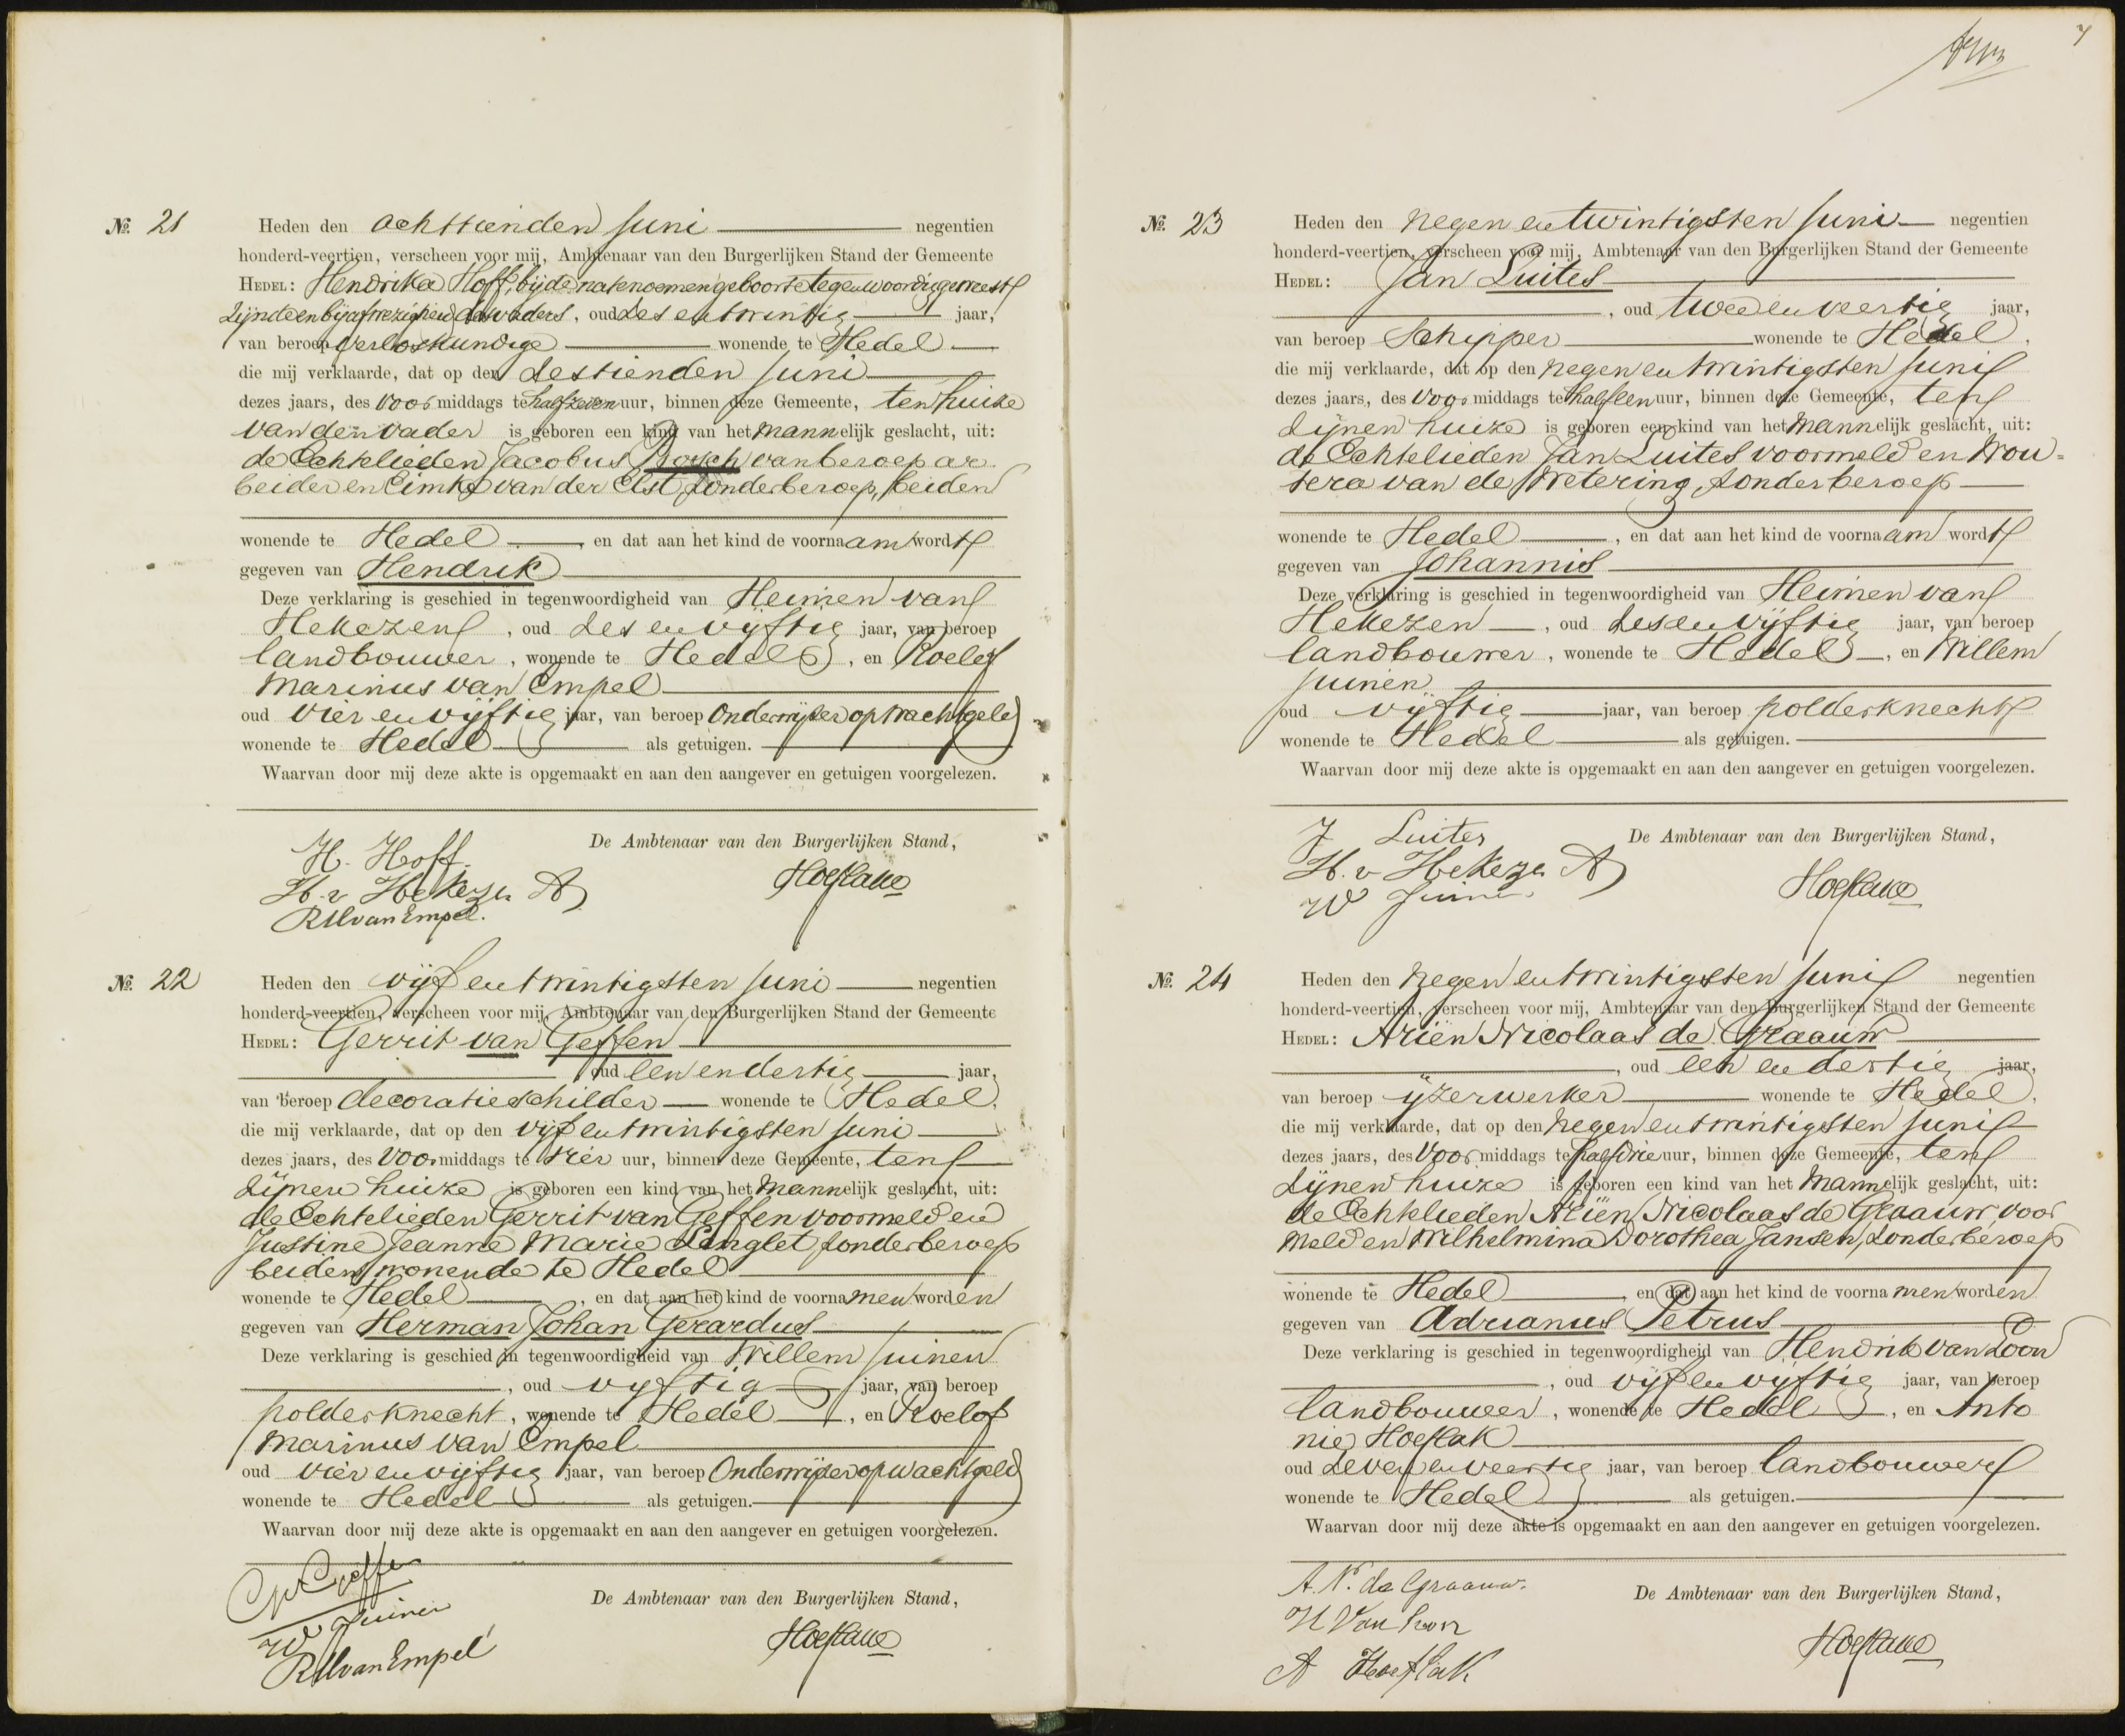 №. 21 Heden den achttienden Juni negentien
honderd-veertien, verscheen voor mij, Ambtenaar van den Burgerlijken Stand der Gemeente
HEDEL: Hendrika Hoff, bij de natenoemen geboorte tegenwoordig geweest
zijnde en bij afwezigheid des vaders, oud zes en twintig jaar,
van beroep verloskundige wonende te Hedel
die mij verklaarde, dat op den zestienden Juni
dezes jaars, des voormiddags te half zeven uur, binnen deze Gemeente, ten huize
van den vader is geboren een kind van het mannelijk geslacht, uit:
de Echtelieden Jacobus Bosch van beroep ar
beider en Eimke van der Elst, zonder beroep, beiden
wonende te Hedel, en dat aan het kind de voornaam wordt
gegeven van Hendrik
Deze verklaring is geschied in tegenwoordigheid van Heimen van
Hekezen, oud zes en vijftig jaar, van beroep
landbouwer, wonende te Hedel, en Roelof
Marinus van Empel
oud vier en vijftig jaar, van beroep Onderwijzer op wachtgeld
wonende te Hedel als getuigen.
Waarvan door mij deze akte is opgemaakt en aan den aangever en getuigen voorgelezen.
De Ambtenaar van den Burgerlijken Stand,
H. Hoff.
H. v Hekeze A
RM van Empel.
Hoeflake
№. 22 Heden den vijf en twintigsten Juni negentien
honderd-veertien, verscheen voor mij, Ambtenaar van den Burgerlijken Stand der Gemeente
HEDEL: Gerrit van Geffen
oud een en dertig jaar,
van beroep decoratieschilder wonende te Hedel,
die mij verklaarde, dat op den vijf en twintigsten Juni
dezes jaars, des voormiddags te vier uur, binnen deze Gemeente, ten
zijnen huize is geboren een kind van het mannelijk geslacht, uit:
de Echtelieden Gerrit van Geffen voormeld en
Justine Jeanne Marie Linglet, zonder beroep
beiden wonende te Hedel
wonende te Hedel, en dat aan het kind de voornamen worden
gegeven van Herman Johan Gerardus
Deze verklaring is geschied in tegenwoordigheid van Willem Juinen
, oud vijftig jaar, van beroep
polderknecht, wonende te Hedel, en Roelof
Marinus van Empel
oud vier en vijftig jaar, van beroep Onderwijzer op wachtgeld
wonende te Hedel als getuigen.
Waarvan door mij deze akte is opgemaakt en aan den aangever en getuigen voorgelezen.
De Ambtenaar van den Burgerlijken Stand,
G v Geffen
W Juinen
RM van Empel
Hoeflake
7
№. 23 Heden den negen en twintigsten Juni negentien
honderd-veertien, verscheen voor mij, Ambtenaar van den Burgerlijken Stand der Gemeente
HEDEL: Jan Luites
, oud twee en veertig jaar,
van beroep Schipper wonende te Hedel,
die mij verklaarde, dat op den negen en twintigsten Juni
dezes jaars, des voormiddags te half een uur, binnen deze Gemeente, ten
zijnen huize is geboren een kind van het mannelijk geslacht, uit:
de Echtelieden Jan Luites voormeld en Wou=
tera van de Wetering, zonder beroep
wonende te Hedel, en dat aan het kind de voornaam wordt
gegeven van Johannis
Deze verklaring is geschied in tegenwoordigheid van Heimen van
Hekezen, oud zes en vijftig jaar, van beroep
landbouwer, wonende te Hedel, en Willem
Juinen
oud vijftig jaar, van beroep polderknecht
wonende te Hedel als getuigen.
Waarvan door mij deze akte is opgemaakt en aan den aangever en getuigen voorgelezen.
De Ambtenaar van den Burgerlijken Stand,
J Luites
H. v Hekeze A
W Juinen
Hoeflake
№. 24 Heden den negen en twintigsten Juni negentien
honderd-veertien, verscheen voor mij, Ambtenaar van den Burgerlijken Stand der Gemeente
HEDEL: Ariën Nicolaas de Graauw
, oud een en dertig jaar,
van beroep ijzerwerker wonende te Hedel,
die mij verklaarde, dat op den negen en twintigsten Juni
dezes jaars, des voormiddags te half drie uur, binnen deze Gemeente, ten
zijnen huize is geboren een kind van het mannelijk geslacht, uit:
de Echtelieden Ariën Nicolaas de Graauw, voor
meld en Wilhelmina Dorothea Jansen, zonder beroep
wonende te Hedel, en dat aan het kind de voornamen worden
gegeven van Adrianus Petrus
Deze verklaring is geschied in tegenwoordigheid van Hendrik van Loon
, oud vijf en vijftig jaar, van beroep
landbouwer, wonende te Hedel, en Anto
nie Hoeflak
oud zeven en veertig jaar, van beroep landbouwer
wonende te Hedel als getuigen.
Waarvan door mij deze akte is opgemaakt en aan den aangever en getuigen voorgelezen.
De Ambtenaar van den Burgerlijken Stand,
A. N. de Graauw.
H Van Loon
A Hoeflak
Hoeflake